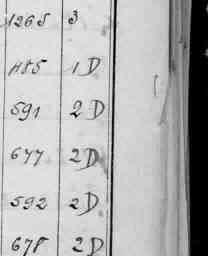 1265 3
1185 1 D
591 2 D
677 2 D
592 2 D
678 2 D